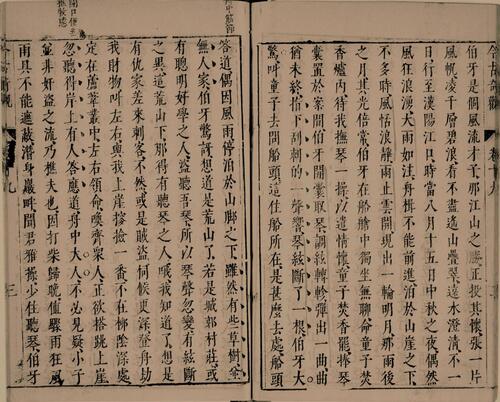 伯牙是個風流才子那江山之勝正投其懷張一片
風帆凌千層碧浪看不盡遙山疊翠遠水澄清不一
日行至漢陽江口時當八月十五日中秋之夜偶然
風狂浪湧大雨如注舟楫不能前進泊於山崖之下
不多時風恬浪靜雨止雲開現出一輪明月那雨後
之月其光倍常伯牙在船艙中獨坐無聊命童子焚
香爐內待我撫琴一操以遣情懷童子焚香罷捧琴
囊置於案間伯牙開囊取琴調絃轉軫彈出一曲曲
猶未終指下刮剌的一聲響琴絃斷了一根伯牙大
驚叫童子去問船頭這住船所在是甚麼去處船頭
答道偶因風雨停泊於山腳之下雖然有些草樹並
無人家伯牙驚訝想道是荒山了若是城郭村莊或
有聰明好學之人盜聽吾琴所以琴聲忽變有絃斷
之異這荒山下那得有聽琴之人哦我知道了想是
有仇家差來刺客不然或是賊盜伺候更深登舟劫
我財物叫左右與我上崖搜檢一番不在柳陰深處
定在蘆葦叢中左右領命喚齊眾人正欲搭跳上崖
忽聽得岸上有人答應道舟中大人不必見疑小子
並非奸盜之流乃樵夫也因打柴歸晚值驟雨狂風
雨具不能遮蔽潛身巖畔聞君雅操少住聽琴伯牙